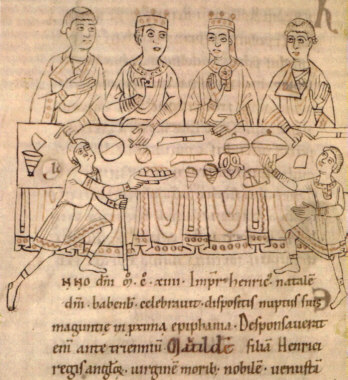 ANNO dñi. M̊. C̊. XIIII. Imp̄r henric⁹ natalē
dñi. babenb celebrauit. dispositis nuptiis suis
maguntie in prima epiphania. Desponsauerat
enī ante trienniū Matildē filiā Henrici
regis angloꝝ. uirginē morib; nobilē. uenustā